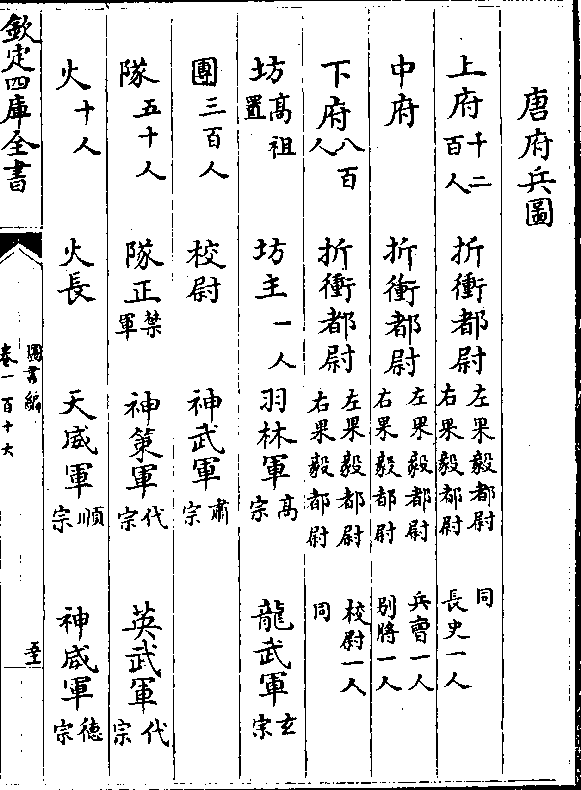 唐府兵圖
上府 千二百人 折衝都尉 左果毅都尉 右果毅都尉 同 長史一人
中府 折衝都尉 左果毅都尉 右果毅都尉 兵曹一人 别將一人
下府 八百人 折衝都尉 左果毅都尉 右果毅都尉 校尉一人 同
坊 髙祖置 坊主 一人 羽林軍 髙宗 龍武軍 玄宗
團 三百人 校尉 神武軍 肅宗
隊 五十人 隊正 禁軍 神策軍 代宗 英武軍 代宗
火 十人 火長 天威軍 順宗 神威軍 德宗
欽定四庫全書
圖書編
卷一百十六